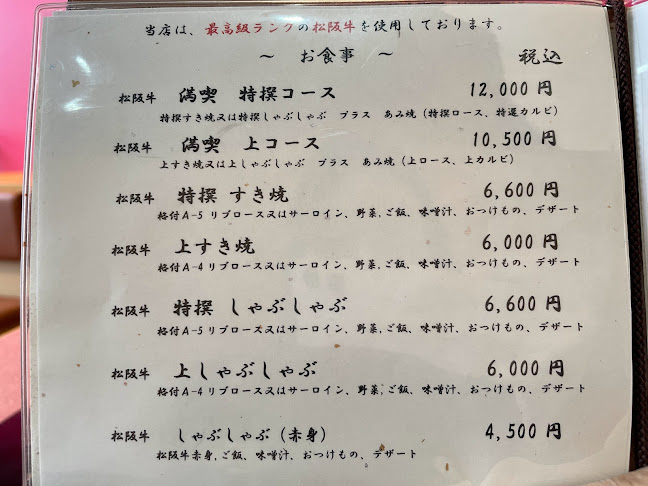 当店は、最高級ランクの松阪牛を使用しております。
～ お食事 ～ 税込
松阪牛 満喫 特撰コース 12,000 円
特撰すき焼又は特撰しゃぶしゃぶ プラス あみ焼（特撰ロース、特選カルビ）
松阪牛 満喫 上コース 10,500 円
上すき焼又は上しゃぶしゃぶ プラス あみ焼（上ロース、上カルビ）
松阪牛 特撰 すき焼 6,600 円
格付A-5 リブロース又はサーロイン、野菜,ご飯、味噌汁、おつけもの、デザート
松阪牛 上すき焼 6,000 円
格付A-4 リブロース又はサーロイン、野菜,ご飯、味噌汁、おつけもの、デザート
松阪牛 特撰 しゃぶしゃぶ 6,600 円
格付A-5 リブロース又はサーロイン、野菜,ご飯、味噌汁、おつけもの、デザート
松阪牛 上しゃぶしゃぶ 6,000 円
格付A-4 リブロース又はサーロイン、野菜,ご飯、味噌汁、おつけもの、デザート
松阪牛 しゃぶしゃぶ（赤身） 4,500 円
松阪牛赤身,ご飯、味噌汁、おつけもの、デザート